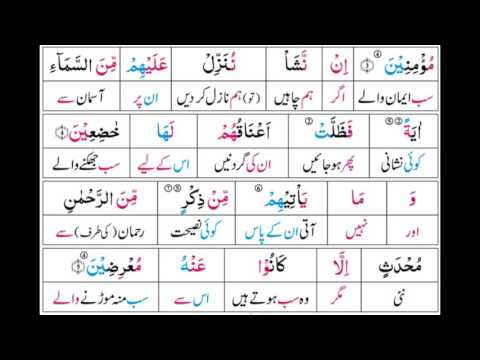 مُؤْمِنِيْنَ ﴿٣﴾ اِنْ نَّشَاْ نُنَزِّلْ عَلَيْهِمْ مِّنَ السَّمَآءِ
سب ایمان والے اگر ہم چاہیں (تو) ہم نازل کر دیں ان پر آسمان سے
اٰيَةً فَظَلَّتْ اَعْنَاقُهُمْ لَهَا خٰضِعِيْنَ ﴿٤﴾
کوئی نشانی پھر ہو جائیں ان کی گردنیں اس کے لیے سب جھکنے والے
وَ مَا يَاْتِيْهِمْ مِّنْ ذِكْرٍ مِّنَ الرَّحْمٰنِ
اور نہیں آتی ان کے پاس کوئی نصیحت رحمان (کی طرف) سے
مُحْدَثٍ اِلَّا كَانُوْا عَنْهُ مُعْرِضِيْنَ ﴿٥﴾
نئی مگر وہ سب ہوتے ہیں اس سے سب منہ موڑنے والے